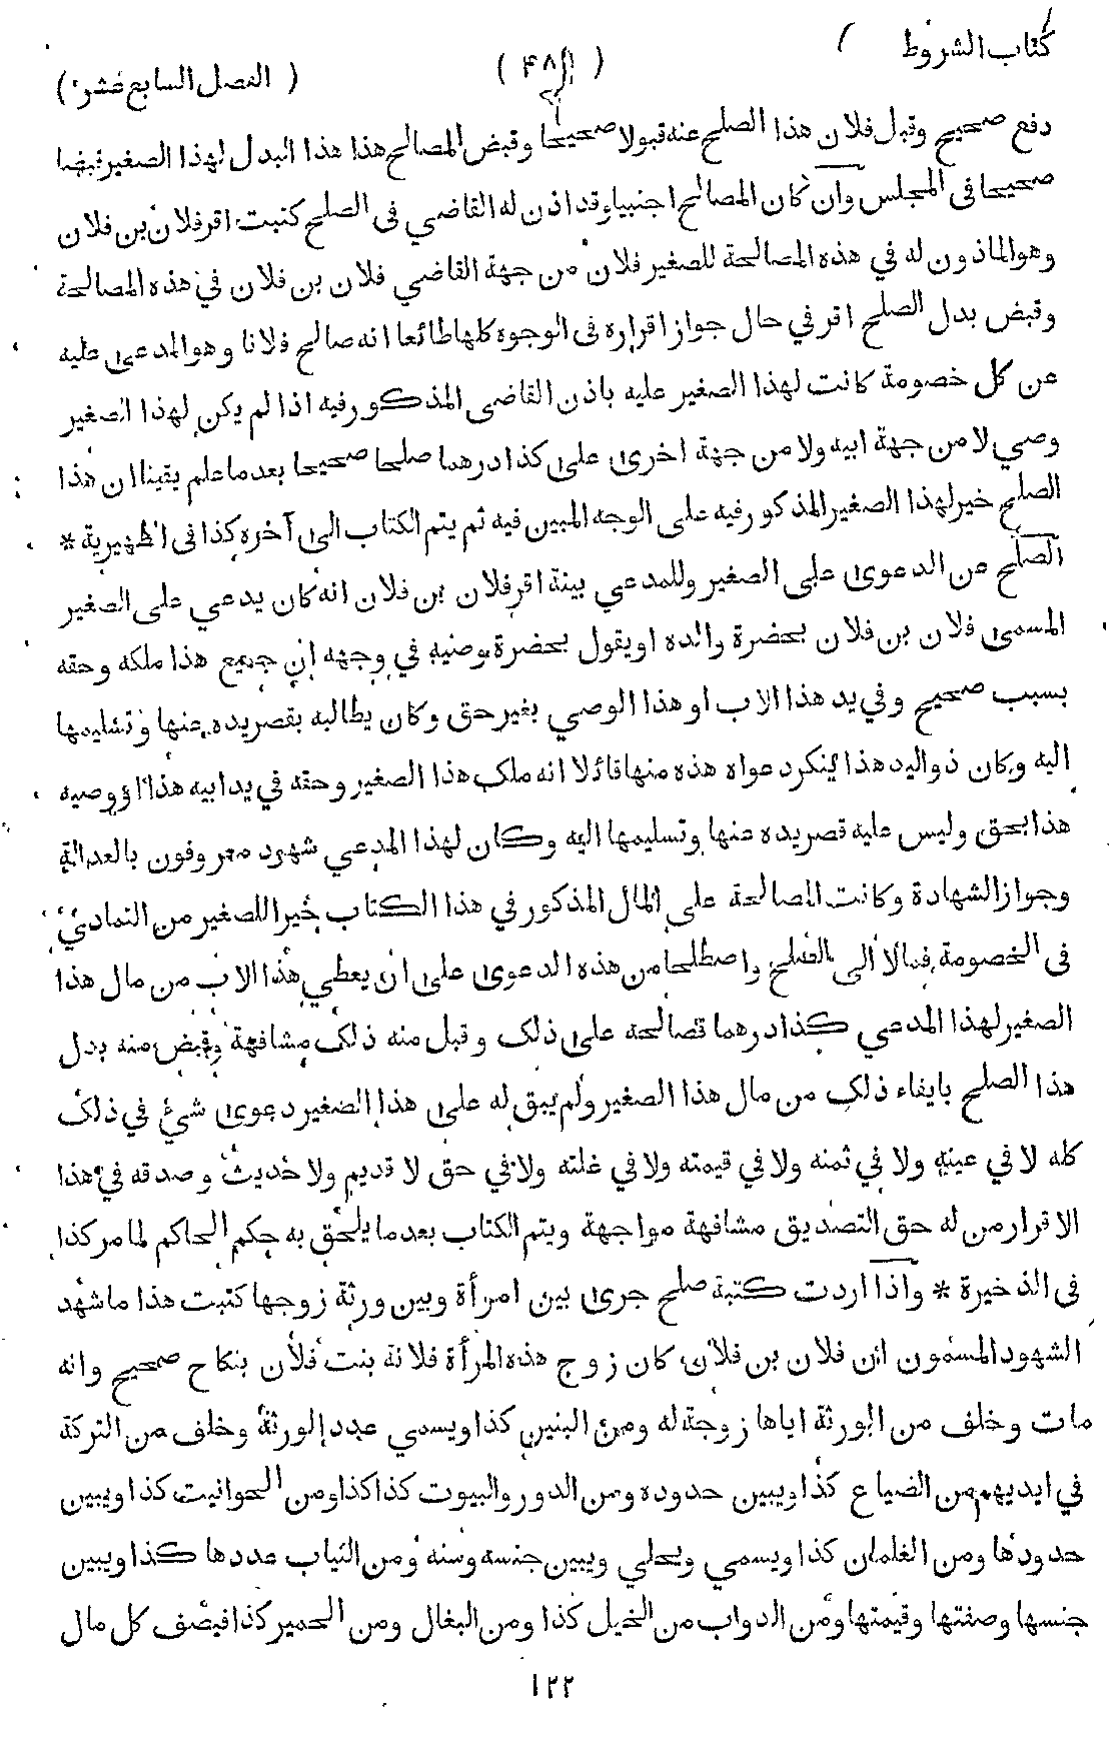 كتاب الشروط ( ۴۸ ) ( الفصل السابع عشر )
دفع صحيح وقبل فلان هذا الصلح عنه قبولا صحيحا وقبض المصالح هذا هذا البدل لهذا الصغير قبضا
صحيحا فى المجلس وان كان المصالح اجنبيا وقد اذن له القاضي فى الصلح كتبت اقر فلان بن فلان
وهو الماذون له في هذه المصالحة للصغير فلان من جهة القاضي فلان بن فلان في هذه المصالحة
وقبض بدل الصلح اقر في حال جواز اقراره فى الوجوه كلها طائعا انه صالح فلانا وهو المدعى عليه
عن كل خصومة كانت لهذا الصغير عليه باذن القاضى المذكور فيه اذا لم يكن لهذا الصغير
وصي لا من جهة ابيه ولا من جهة اخرى على كذا درهما صلحا صحيحا بعد ما علم يقينا ان هذا
الصلح خير لهذا الصغير المذكور فيه على الوجه المبين فيه ثم يتم الكتاب الى آخره كذا فى الظهيرية *
الصلح عن الدعوى على الصغير وللمدعي بينة اقر فلان بن فلان انه كان يدعي على الصغير
المسمى فلان بن فلان بحضرة والده او يقول بحضرة وصيه في وجهه ان جميع هذا ملكه وحقه
بسبب صحيح وفي يد هذا الاب او هذا الوصي بغير حق وكان يطالبه بقصر يده عنها وتسليمها
اليه وكان ذو اليد هذا ينكر دعواه هذه منها قائلا انه ملك هذا الصغير وحقه في يد ابيه هذا او وصيه
هذا بحق وليس عليه قصر يده عنها وتسليمها اليه وكان لهذا المدعي شهود معروفون بالعدالة
وجواز الشهادة وكانت المصالحة على المال المذكور في هذا الكتاب خيرا للصغير من التمادي
فى الخصومة فمالا الى الصلح واصطلحا من هذه الدعوى على ان يعطي هذا الاب من مال هذا
الصغير لهذا المدعي كذا درهما فصالحه على ذلك وقبل منه ذلك مشافهة وقبض منه بدل
هذا الصلح بايفاء ذلك من مال هذا الصغير ولم يبق له على هذا الصغير دعوى شئ في ذلك
كله لا في عينه ولا في ثمنه ولا في قيمته ولا في غلته ولا في حق لا قديم ولا حديث وصدقه في هذا
الاقرار من له حق التصديق مشافهة مواجهة ويتم الكتاب بعد ما يلحق به حكم الحاكم لما مر كذا
فى الذخيرة * واذا اردت كتبة صلح جرى بين امرأة وبين ورثة زوجها كتبت هذا ما شهد
الشهود المسمون ان فلان بن فلان كان زوج هذه المرأة فلانة بنت فلان بنكاح صحيح وانه
مات وخلف من الورثة اياها زوجة له ومن البنين كذا ويسمي عدد الورثة وخلف من التركة
في ايديهم من الضياع كذا ويبين حدوده ومن الدور والبيوت كذا كذا ومن الحوانيت كذا ويبين
حدودها ومن الغلمان كذا ويسمي ويحلي ويبين جنسه وسنه ومن الثياب عددها كذا ويبين
جنسها وصفتها وقيمتها ومن الدواب من الخيل كذا ومن البغال ومن الحمير كذا فيصف كل مال
۱۲۲